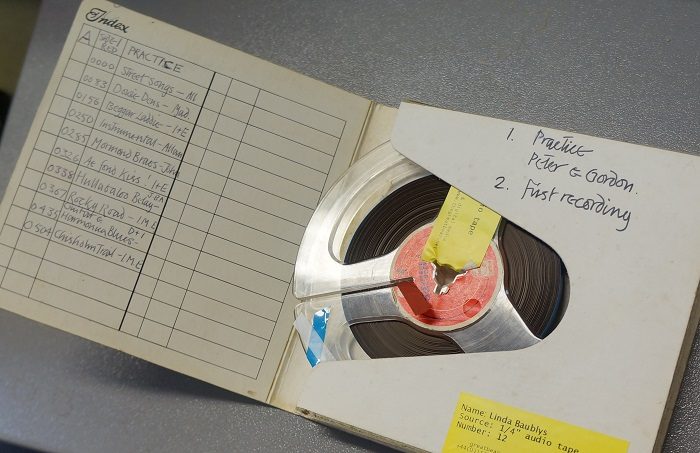 Index
A
PRACTICE
0000 Street Songs - NL
0083 Doxie Dens - Mad.
0156 Beggar Laddie - I+E
0250 Instrumental - Allan
0255 Mormond Braes - John
0326 Ae fond Kiss! I+E
0338 Hullabaloo Belay - Jen
0367 Rocky Road - I.M.L
0435 Harmonica Blues - D+I
0504 Chisholm Trail - I.M.L
1. Practice
Peter & Gordon.
2. First recording
io tape
Name: Linda Baublys
Source: 1/4" audio tape
Number: 12